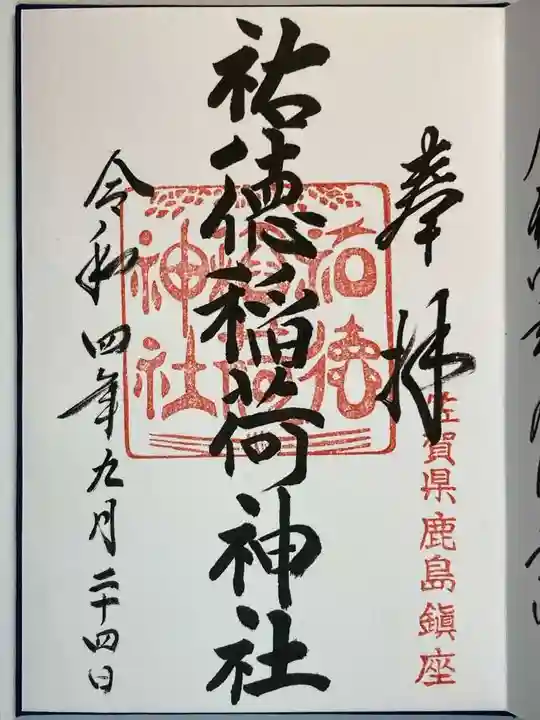 奉拝
佐賀県鹿島鎮座
祐徳稲荷神社
祐徳
稲荷
神社
令和四年九月二十四日